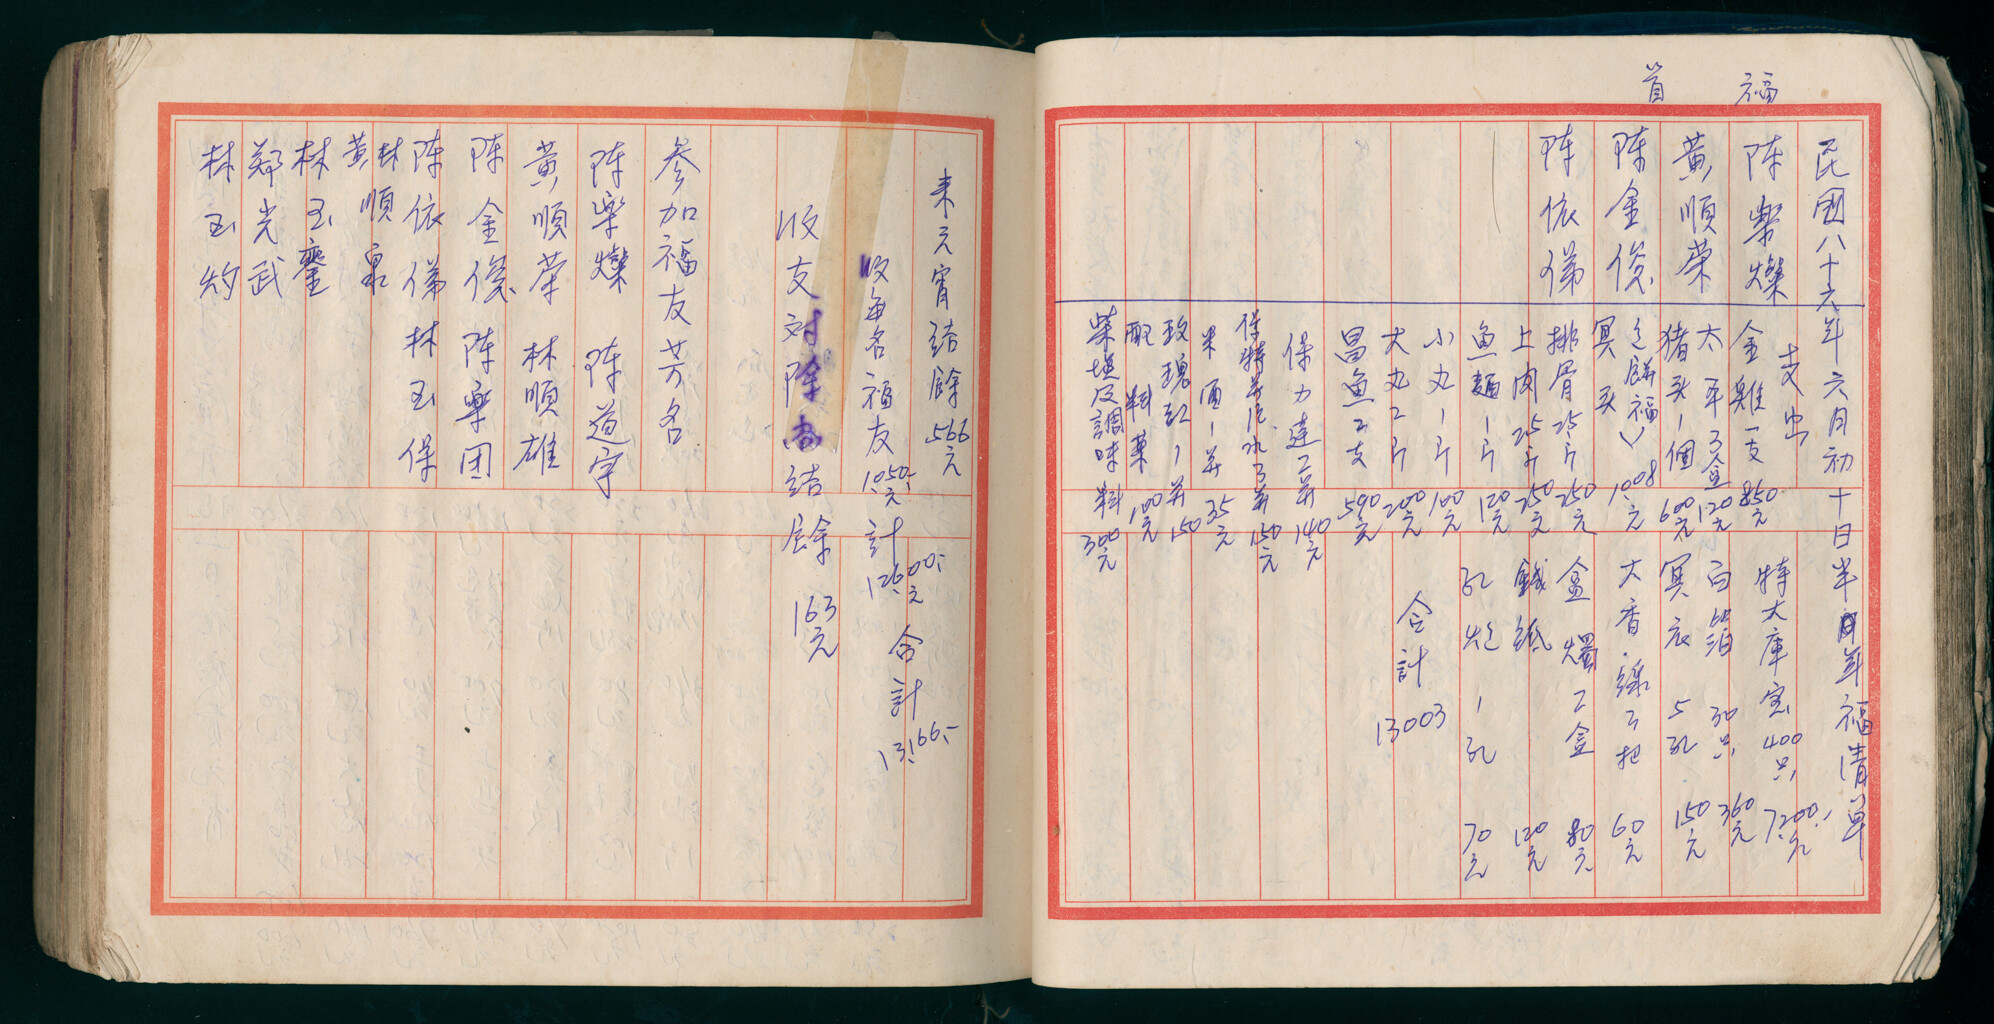 福首
民國八十六年六月初十日半年福清單
陈樂燦
黃順荣
陈金俊
陈依俤
支出
金雞一支 850元
太平3盒 120元
猪头1個 600元
礼餅(福) 1008元
冥衣
排骨25斤 250元
上肉25斤 250元
魚麵1斤 120元
小丸1斤 100元
大丸2斤 200元
昌魚2支 590元
保力達2并 140元
保特并汽水3并 150元
米酒1并 35元
玫瑰紅1并 150
配料菜 100元
柴堆及調味料 300元
特大庫宝400只 7200元
白箔30只 360元
冥衣5孔 150元
大香.線3把 60元
盒燭2盒 80元
錢紙 120元
孔炮1孔 70元
合計 13003
来元宵结餘566元
收每名福友1050元計12600元合計13166
收支对除尚结餘163元
参加福友芳名
陈樂燦 陈道宇
黃順荣 林順雄
陈金俊 陈樂团
陈依俤 林玉保
林順泉
黃
林玉鑾
郑光武
林玉灼